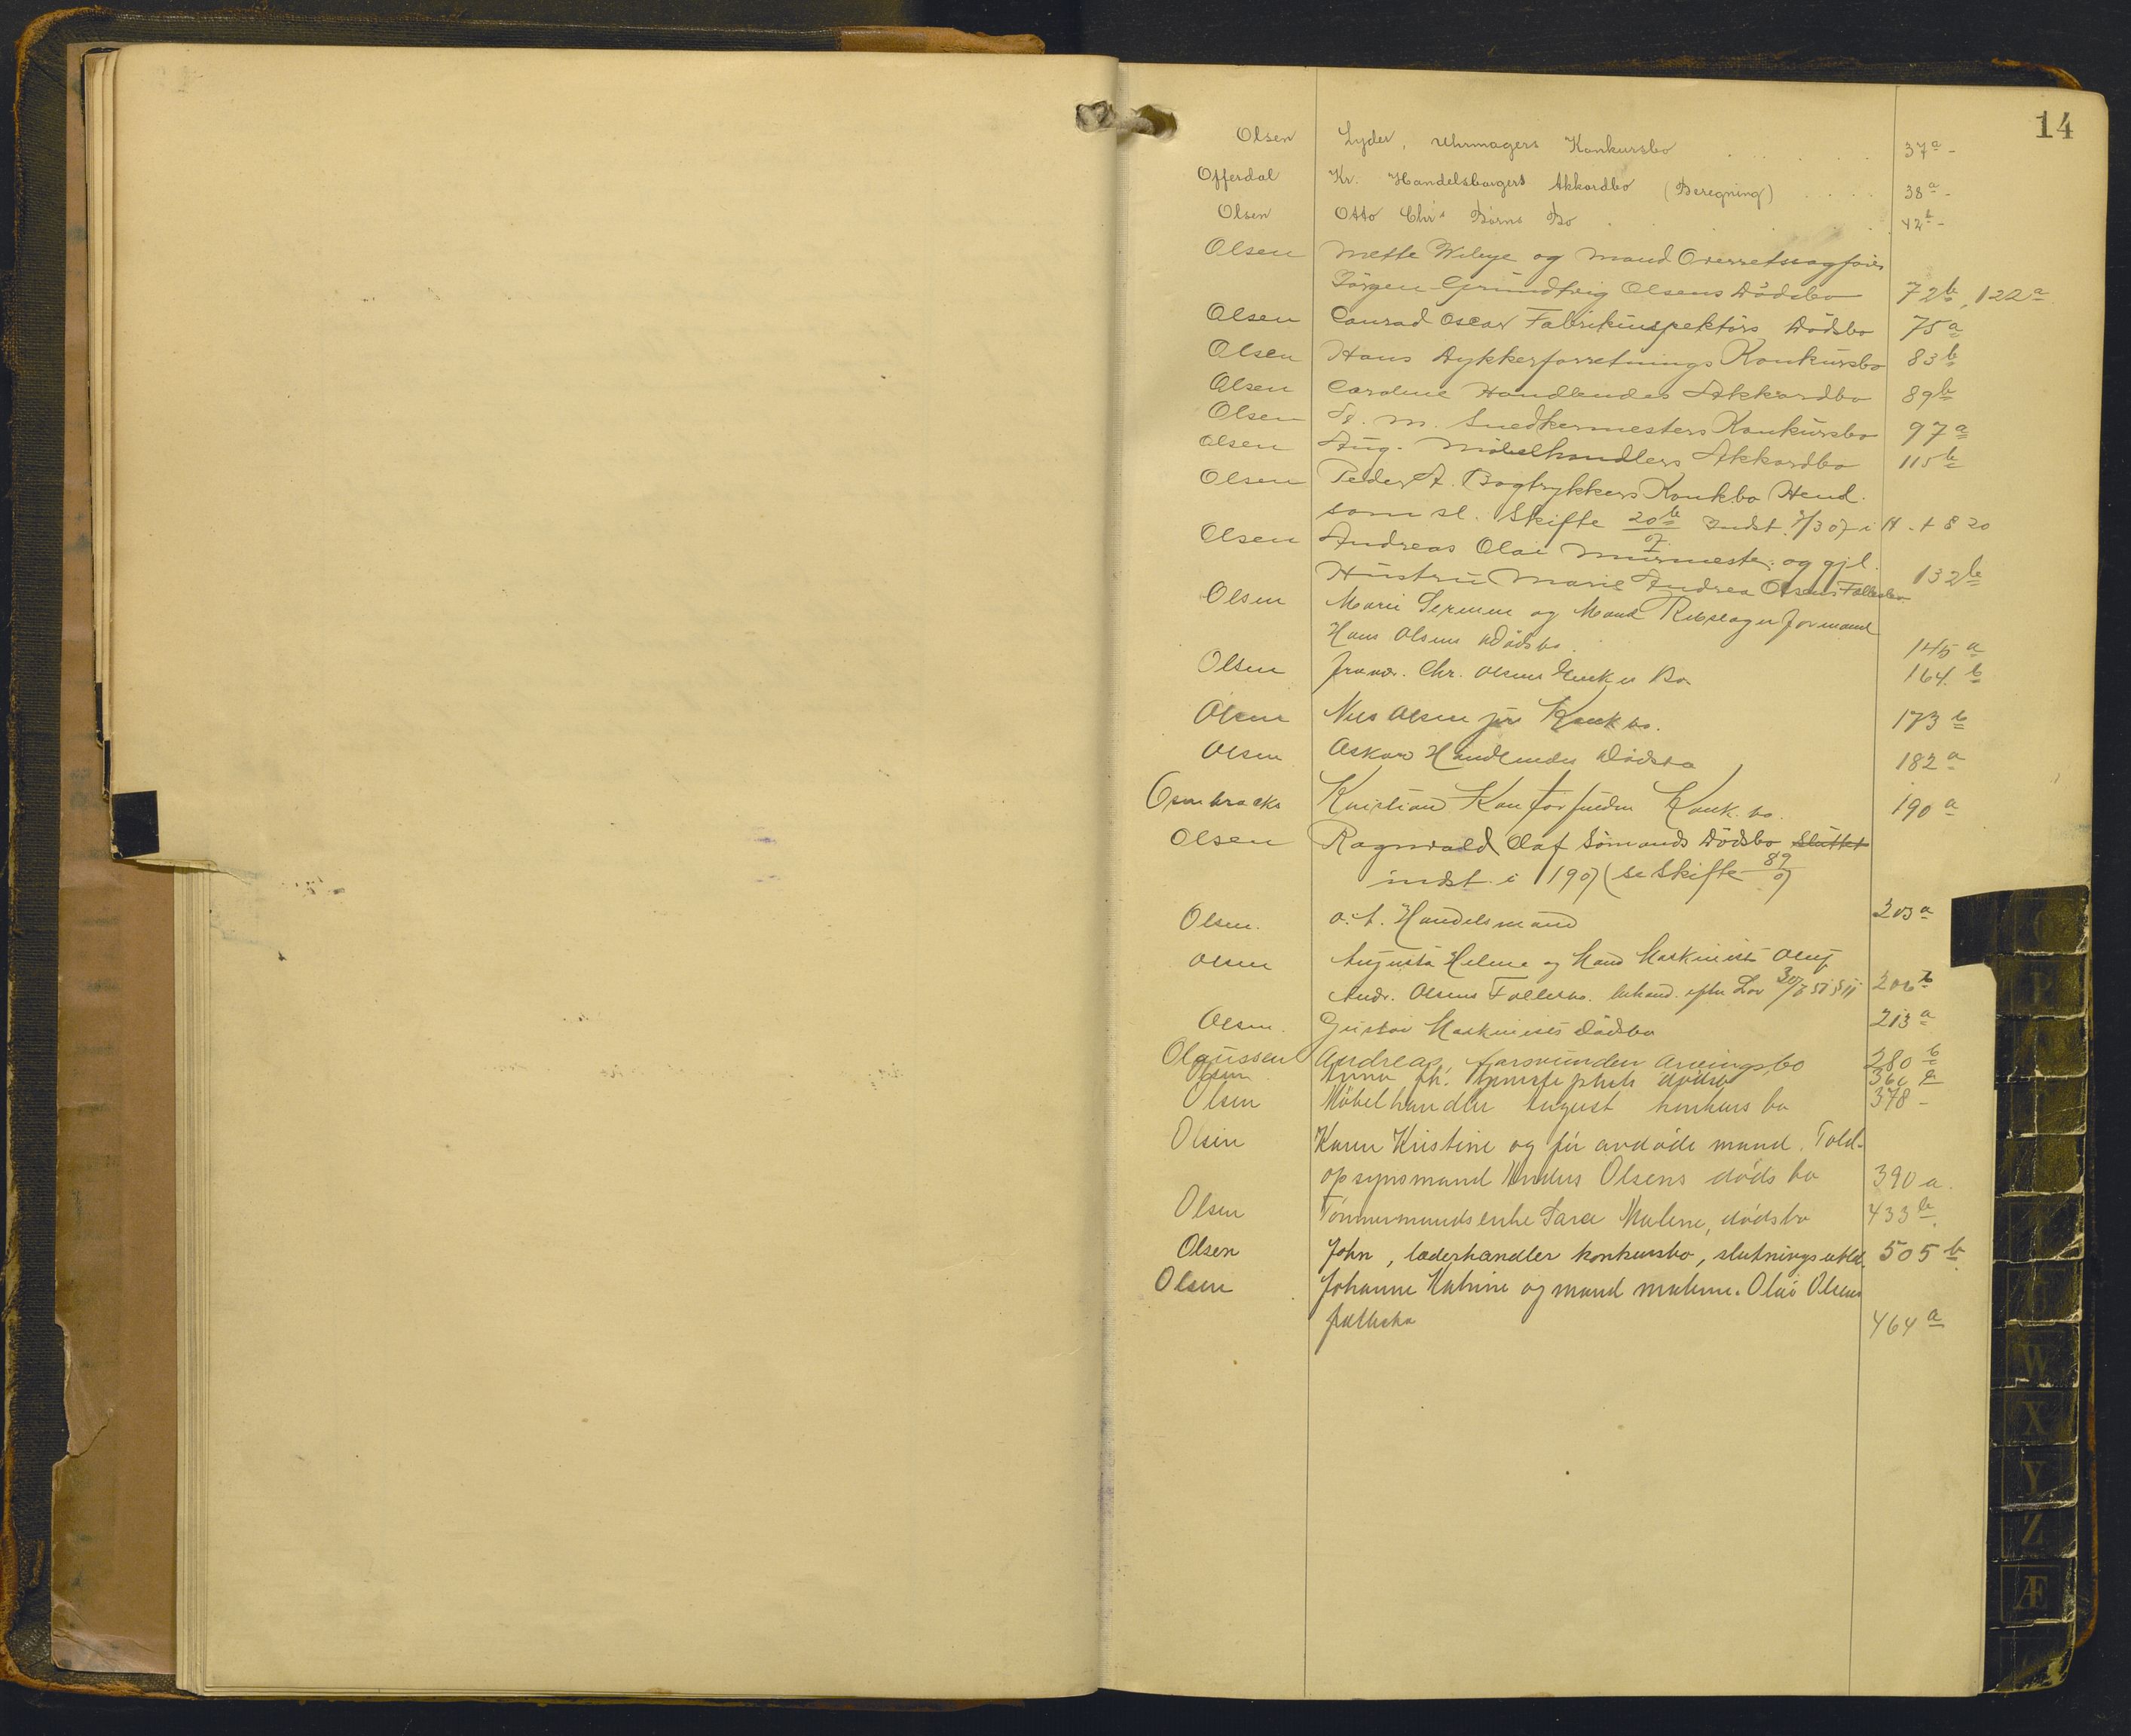 14
Olsen Lyder, Uhrmagers Konkursbo 37a -
Offerdal Kr. Handelsborgers Akkordbo (Beregning) 38a -
Olsen Otto Chrs Børns Bo 42b -
Olsen Mette Wibye og Mand Overretssagfører
Jörgen Grundtvig Olsens Dödsbo 72b, 122a
Olsen Conrad Oscar Fabrikinspektörs Dödsbo 75a
Olsen Hans Dykkerforretnings Konkursbo 83b
Olsen Caroline Handlendes Akkordbo 89b
Olsen M. Snedkermesters Konkursbo 97a
Olsen Aug. Möbelhandlers Akkordbo 115b
Olsen Peder A. Bogtrykkers Konkbo Hend.
som se. Skifte 20b/07 Indst. i H. t 8 20
Olsen Andreas Olai Murmester og gjl.
Hustru Marie Andrea Olsens Fællesbo 132b
Olsen Marie Serine og Mand Rebslagerformand
Hans Olsens Dödsbo 145a
Olsen Chr. Olsens Enkes Bo 164b
Olsen Nils Olsen jrs Konkbo. 173b
Olsen Oskar Handlendes Dödsbo 182a
Kristian Konk. bo. 190a
Olsen Ragnvald Olaf Sömands Dödsbo Sluttet
indst. i 1907 (se Skifte 89/07
Olsen. O. A. Handelsmand 203a
Olsen Augusta Helene og Mand Maskinist Oluf
Andr. Olsens Fællesbo. behand. efter Lov 30/7 51 § 11 206b
Olsen. Gustav Maskinists Dödsbo 213a
Olaussen Andreas, forsvunden arvingsbo 280b
Olsen Anna dødsbo 360a
Olsen Möbelhandler August konkursbo 378 -
Olsen Karen Kristine og før avdøde mand. Told-
opsynsmand Olsens døds bo 390a.
Olsen Tømmermands enke Sara Malene, dødsbo 433b.
Olsen John, læderhandler konkursbo, slutningsutld. 505b
Olsen Johanne Katrine og mand Olai Olsens
fællesbo 464a
O
P
W
X
Y
Z
Æ